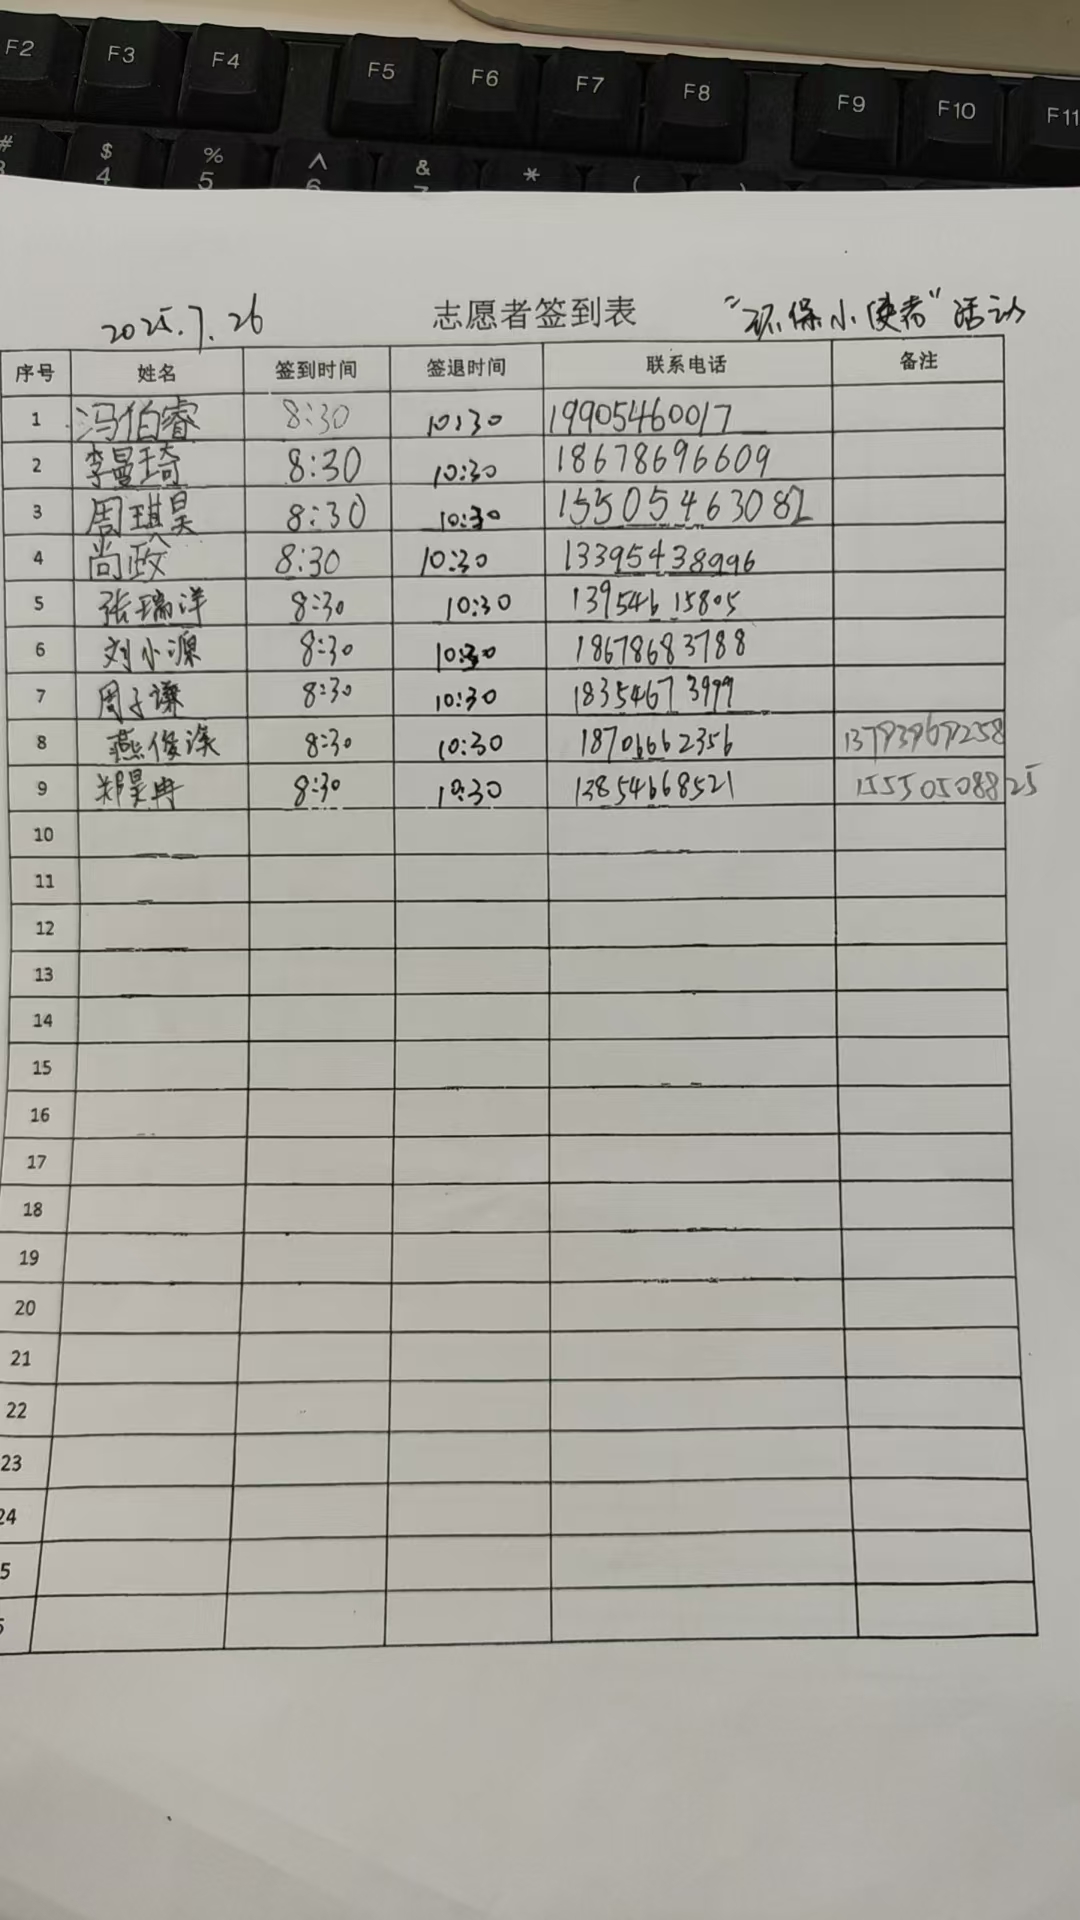 F2 F3 F4 F5 F6 F7 F8 F9 F10 F11
# $ % ^ & * ( )
3 4 5 6 7
2025.7.26 志愿者签到表 “环保小使者”活动
序号 姓名 签到时间 签退时间 联系电话 备注
1 冯伯睿 8:30 10:30 19905460017
2 李曼琦 8:30 10:30 18678696609
3 周琪昊 8:30 10:30 15505463082
4 尚政 8:30 10:30 13395438996
5 张瑞洋 8:30 10:30 13954615805
6 刘小源 8:30 10:30 18678683788
7 周子谦 8:30 10:30 18354673999
8 燕俊 8:30 10:30 18701662356
9 郑昊冉 8:30 10:30 13854668521 15550508825
10
11
12
13
14
15
16
17
18
19
20
21
22
23
24
5